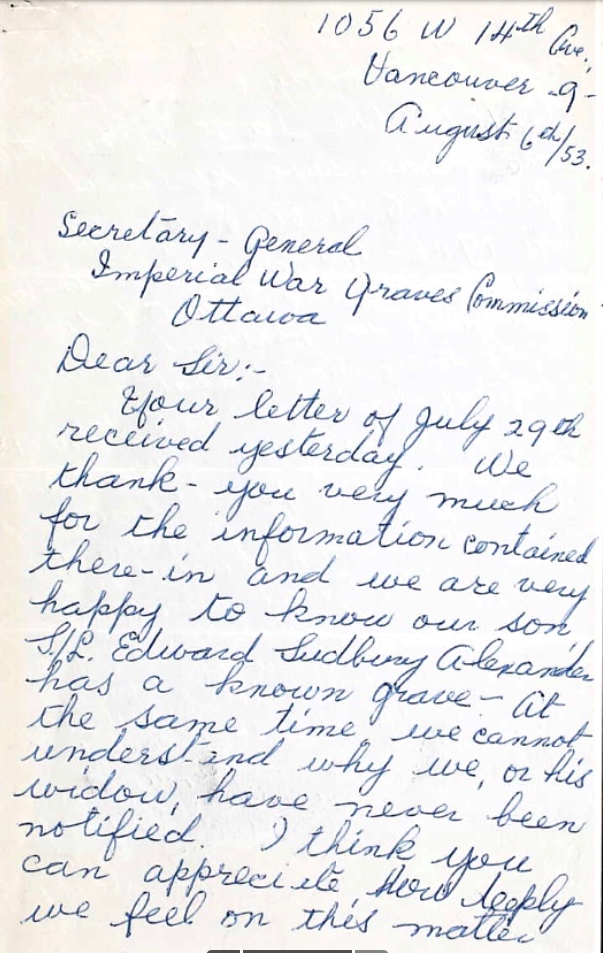 1056 W 14th Ave.,
Vancouver -9-
August 6th/53.
Secretary - General
Imperial War Graves Commission
Ottawa
Dear Sir:-
Your letter of July 29th
received yesterday. We
thank-you very much
for the information contained
there-in and we are very
happy to know our son,
S/L. Edward Sudbury Alexander
has a known grave - At
the same time we cannot
understand why we, or his
widow, have never been
notified. I think you
can appreciate how deeply
we feel on this matter